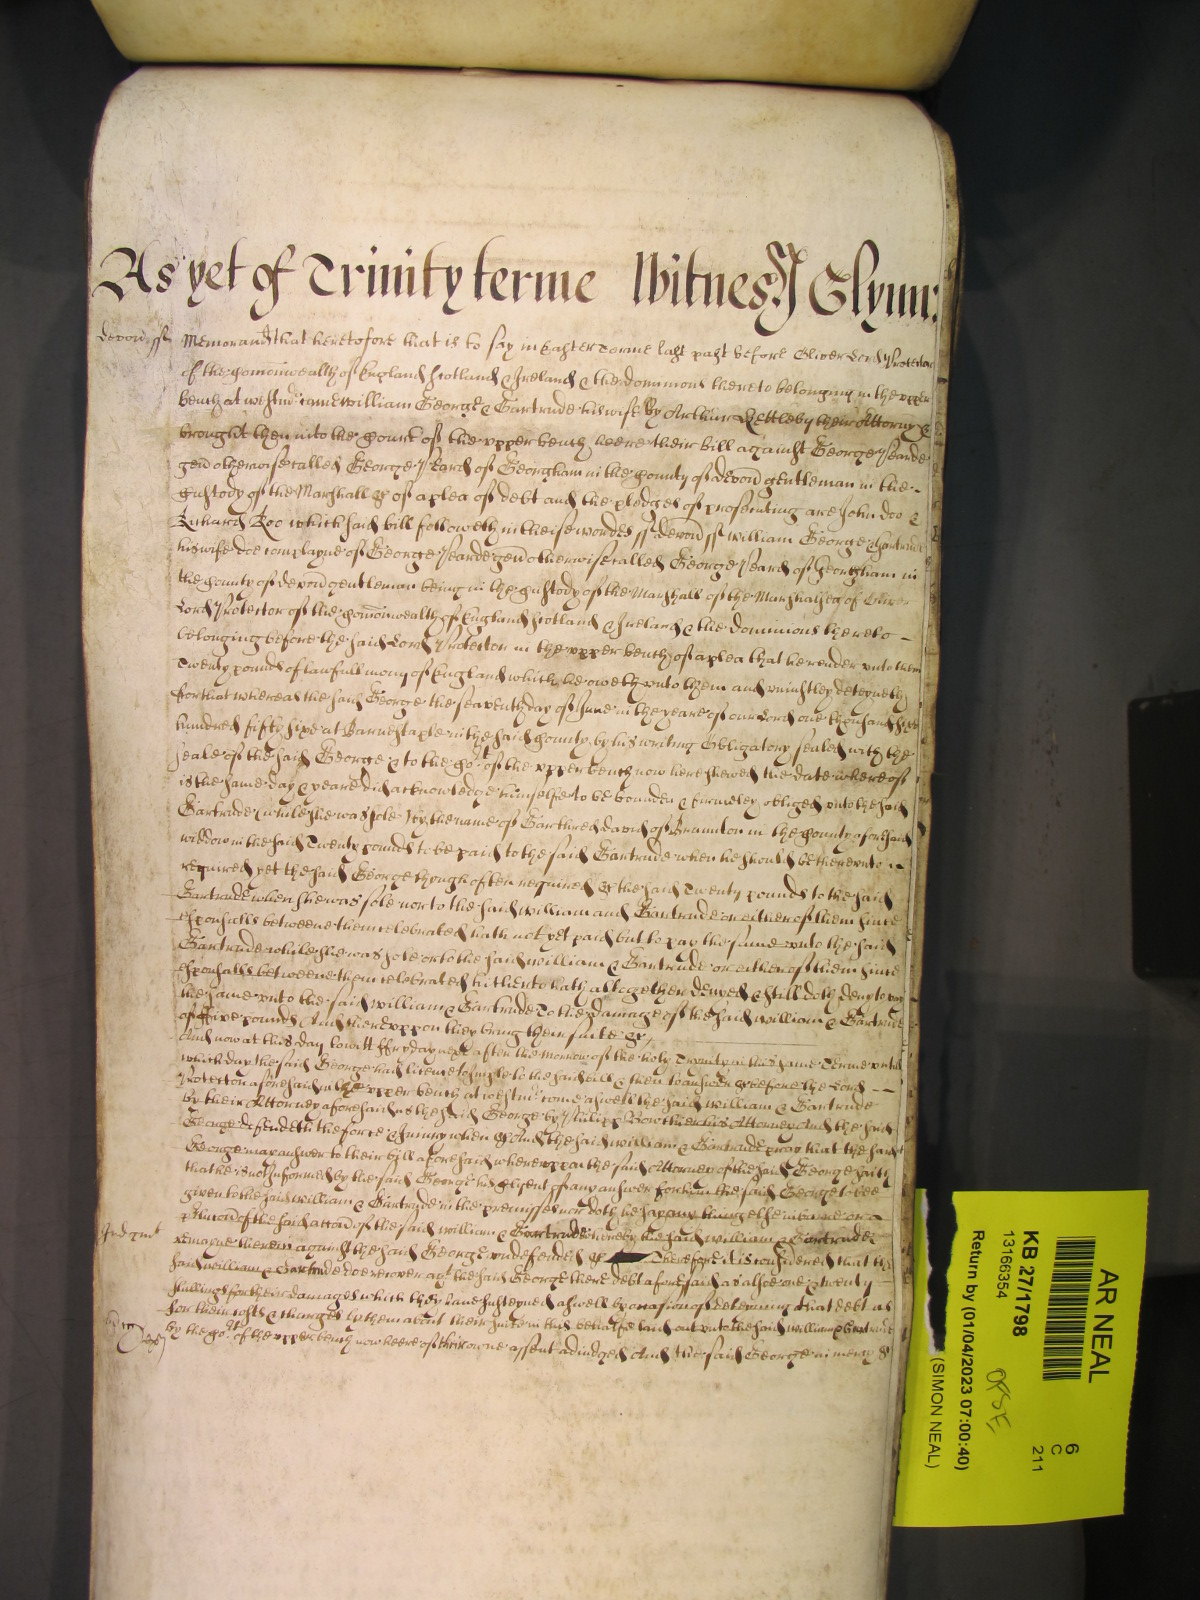 As yet of Trinity terme Witness J Glynn:
Devon ss
Memorand that heretofore that is to say in Easter Terme last past before Oliver Lord Protector
of the Comonwealth of England Scotland & Ireland & the dominions thereto belonging in the upper
bench at Westmr came William George & Gartrude his wife by Arthur Kettleby their Attorny &
brought then into the Court of the upper bench heere their bill against George Yearde
gen otherwise called George Yeard of Georgham in the County of Devon gentleman in the
Custody of the Marshall &c of a plea of debt and the pledges of prosecuting are John Doo &
Richard Roo which said bill followeth in theise wordes ss Devon ss William George & Gartrude
his wife doe complayne of George Yearde gen otherwise called George Yeard of Georgham in
the County of Devon gentleman being in the Custody of the Marshall of the Marshalsea of Oliver
Lord Protector of the Comonwealth of England Scotland & Ireland & the dominions thereto
belonging before the said Lord Protector in the upper bench of a plea that he render unto them
Twenty pounds of lawfull mony of England which he oweth unto them and uniustley deteyneth
For that whereas the said George the seaventh day of June in the yeare of our Lord one thousand six
hundred fifty six at Barnestaple in the said County by his writing Obligatory sealed with the
seale of the said George & to the Cot of the upper bench now here shewed the date whereof
is the same day & yeare did acknowledge himselfe to be bounden & firmeley obliged unto the said
Gartrude while she was sole by the name of Garthred David of Braunton in the County aforesaid
widdow in the said Twenty pounds to be paid to the said Gartrude when he should be thereunto
required yet the said George though often required &c the said Twenty pounds to the said
Gartrude when she was sole nor to the said William and Gartrude or either of them since
espousalls betweene them celebrated hath not yet paid but to pay the same unto the said
Gartrude while she was sole or to the said William & Gartrude or either of them since
espousalls betweene them celebrated hitherto hath altogether denyed & still doth deny to pay
the same unto the said William & Gartrude To the damage of the said William & Gartrude
of ffive pounds And thereuppon they bring their suite &c
And now at this day to witt ffryday next after the morrow of the holy Trynity in this same Terme untill
which day the said George had licence to imple to the said bill & then to answer &c before the Lord
Protector aforesaid in the upper bench at Westmr come aswell the said William & Gartrude
by their Attorney aforesaid as the said George by Philipp his Attorney And the said
George defendeth the force & Iniury when &c And the said William & Gartrude pray that the said
George may answer to their bill aforesaid whereuppon the said Attorney of the said George saith
that he is not informed by the said George his Clyent of any answer for him the said George to bee
given to the said William & Gartrude in the premisses nor doth he say any thing else in barre or
of the said accon of the said William & Gartrude whereby the said William & Gartrude
remayne therein against the said George undefended &c Therefore it is considered that the
Judgmt
said William & Gartrude doe recover agt the said George there debt aforesaid as alsoe one & twenty
shillings for their damages which they have susteyned aswell by occasion of deteyning that debt as
for their costs & charges by them about their suite in this behalfe laid out unto the said William & Gartrude
by the Cot of the upper bench now heere of their owne assent adiudged And the said George in mercy &
AR NEAL
6
C
211
KB 27/1798
13166354
Return by (01/04/2023 07:00:40)
(SIMON NEAL)